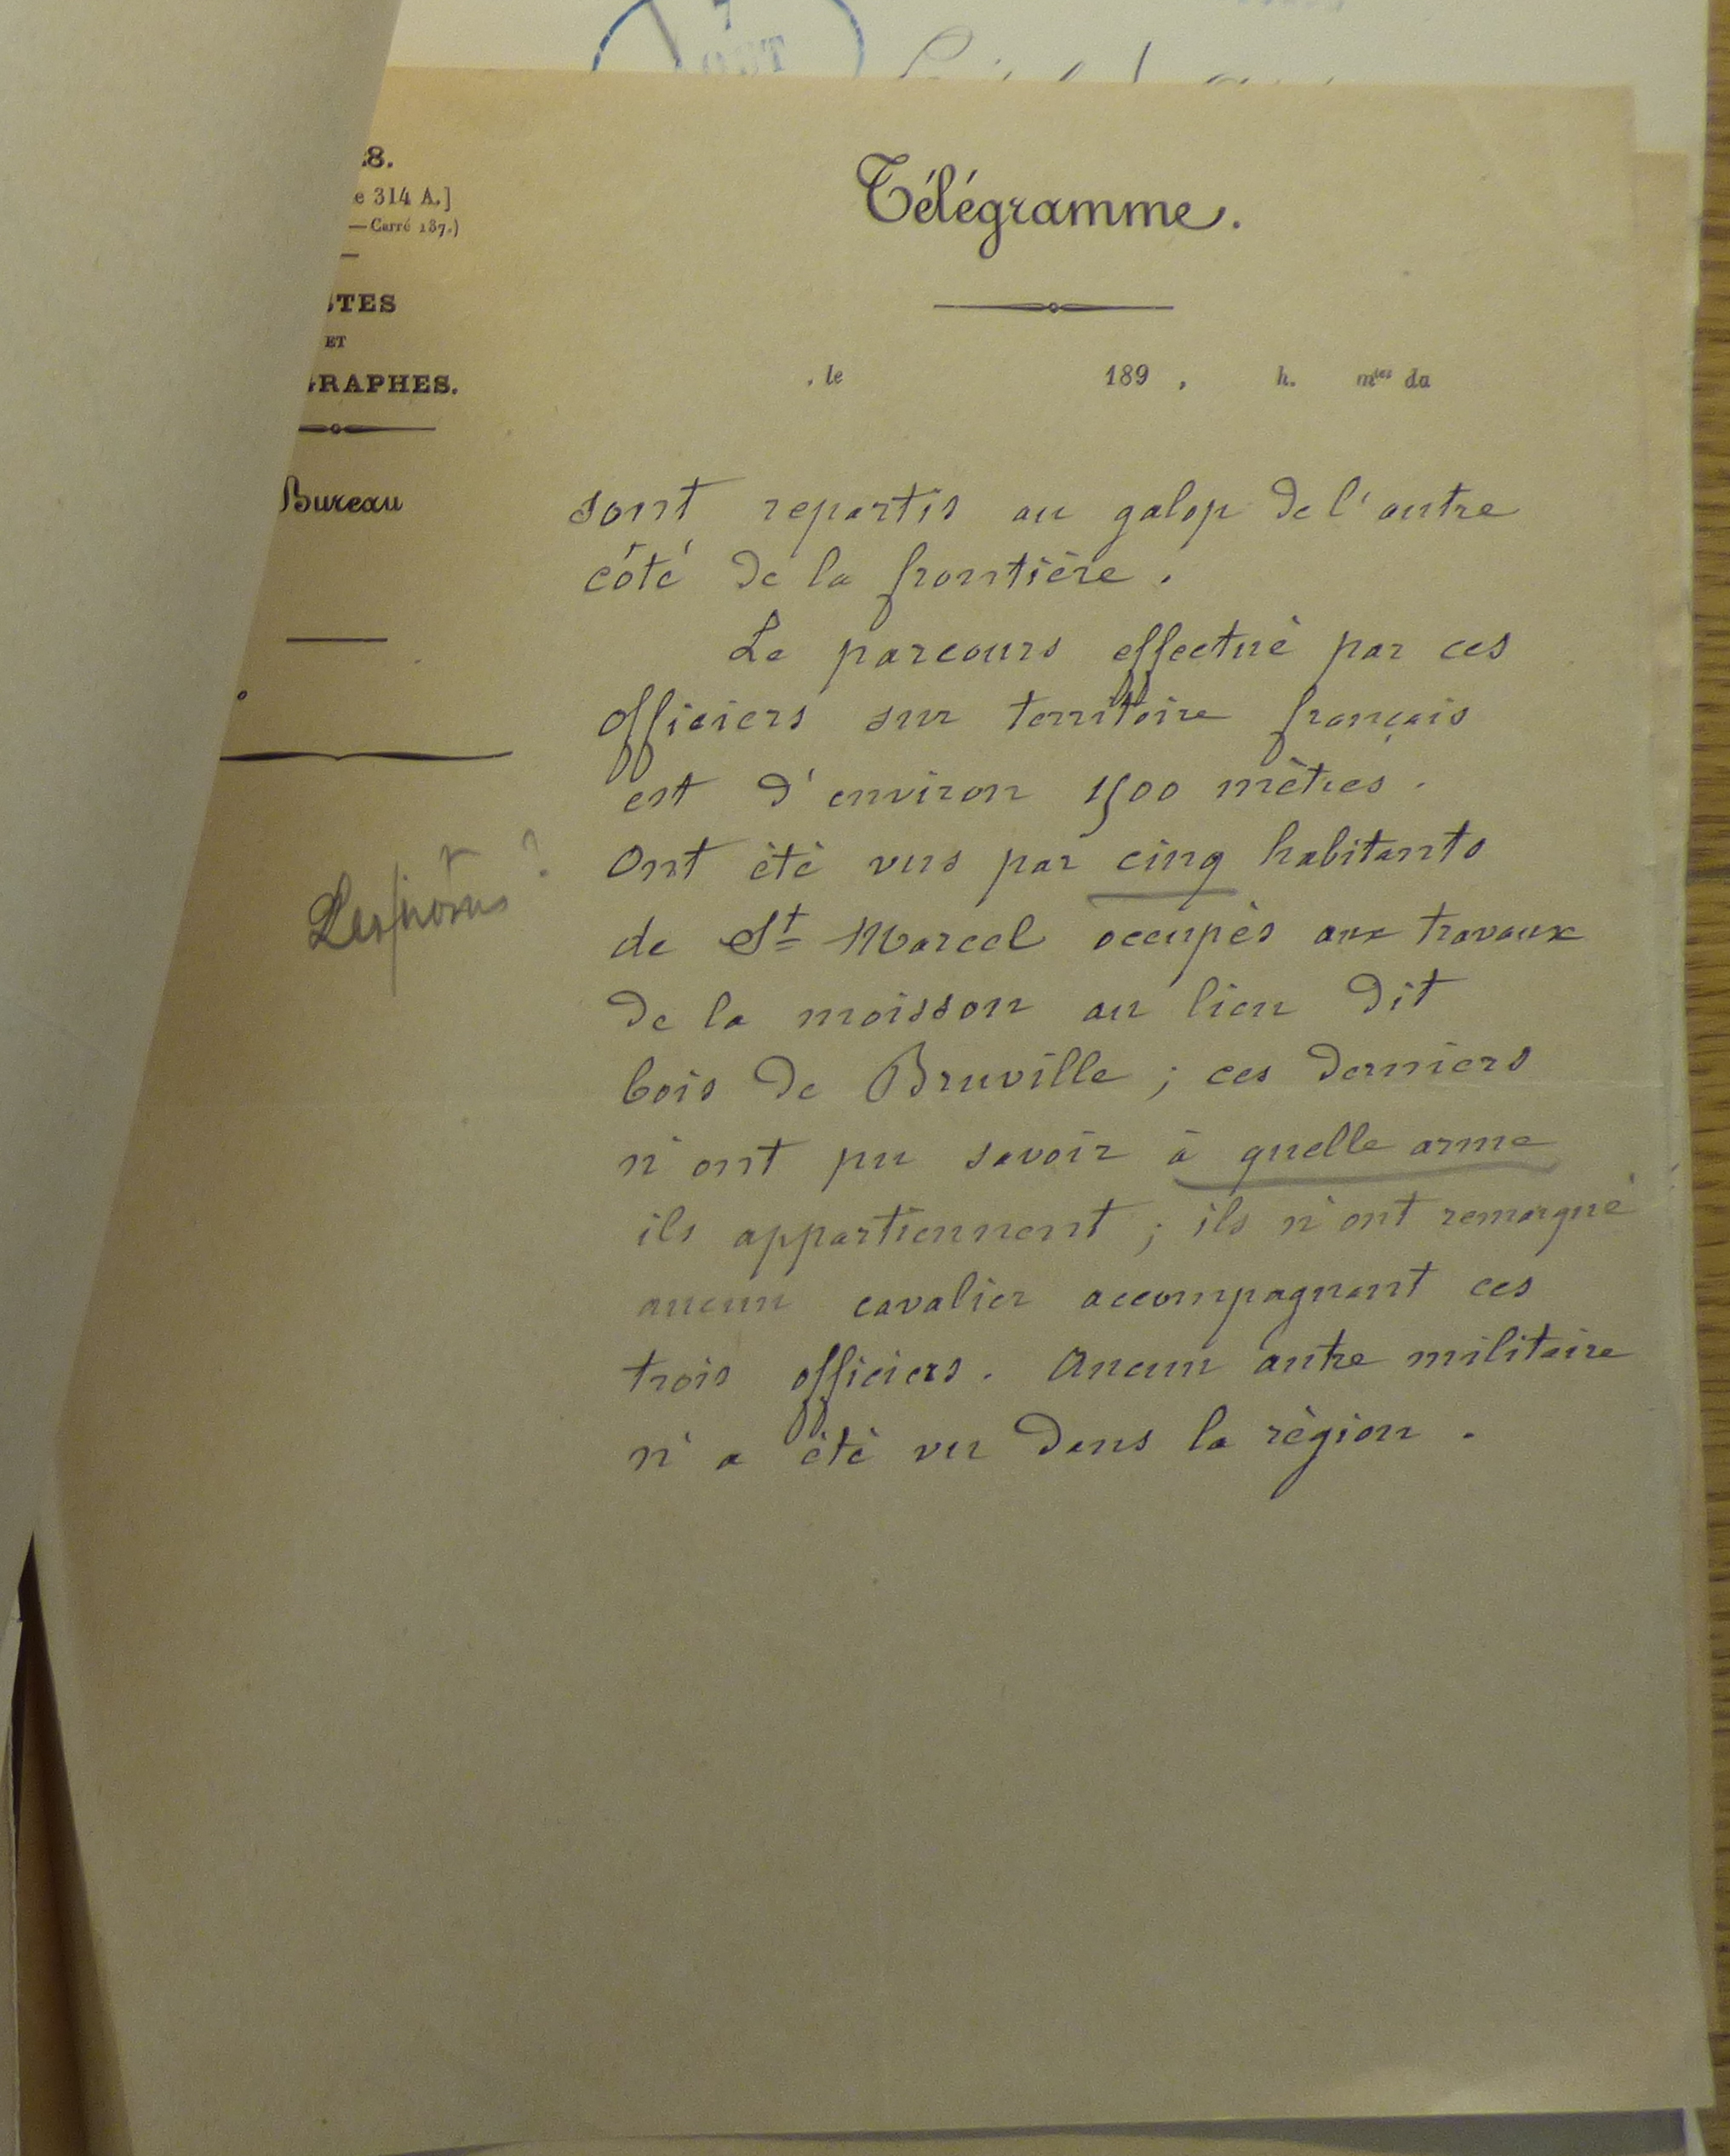 8.
e 314 A.]
— Carré 187.)
STES
ET
GRAPHES.
Bureau
Télégramme.
, le 189 , h. mtes du
sont repartis au galop de l'autre
côté de la frontière.
Le parcours effectué par ces
officiers sur territoire français
est d'environ 1500 mètres.
Ont été vus par cinq habitants
de St Marcel occupés aux travaux
de la moisson au lieu dit
bois de Bruville ; ces derniers
n'ont pu savoir à quelle arme
ils appartiennent ; ils n'ont remarqué
aucun cavalier accompagnant ces
trois officiers. Aucun autre militaire
n'a été vu dans la région.